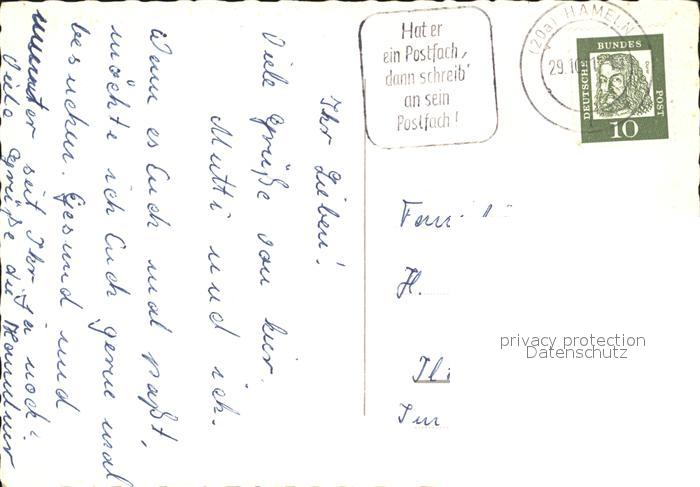 Ihr Lieben!
Viele Grüße von hier.
Mutti und ich.
Wenn es Euch mal paßt,
möchte ich Euch gerne mal
besuchen. Gesund und
munter seit Ihr ja noch?
Viele Grüße
Hat er
ein Postfach,
dann schreib'
an sein
Postfach!
(20a) HAMELN
29.10
DEUTSCHE BUNDES POST
10
Fam
H.
privacy protection
Datenschutz